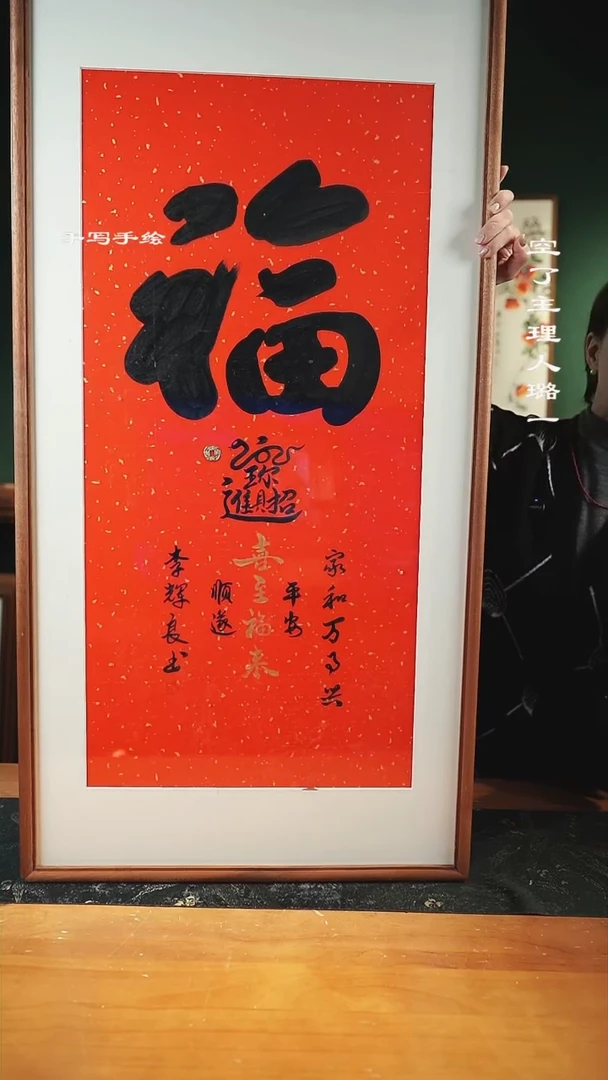 福
招財進
家和万事兴
平安
喜至福来
順遂
李辉良书
手写手绘
空了主理人璐一